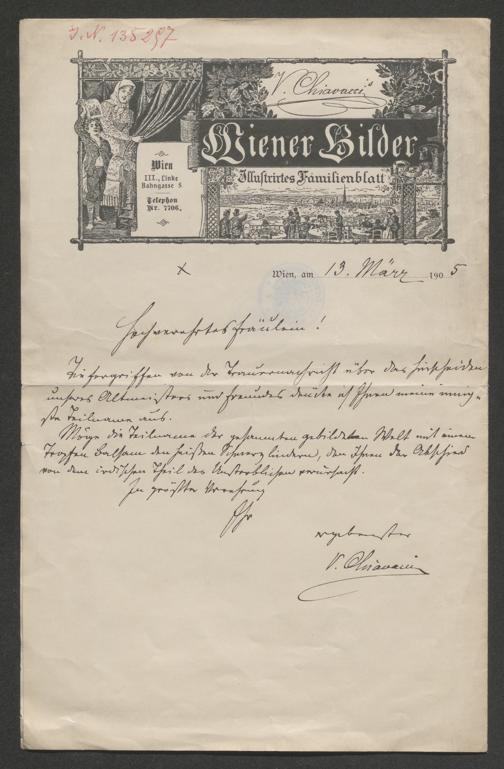 J. N. 135297
V. Chiavacci's
Wiener Bilder
Illustrirtes Familienblatt
Wien
III., Linke
Bahngasse 5
Telephon
Nr. 7706.
x
Wien, am 13. März 1905
Hochverehrtes Fräulein!
Tiefergriffen von der Trauernachricht über das Hinscheiden
unseres Altmeisters und Freundes drücke ich Ihnen meine innig-
ste Teilname aus.
Möge die Teilname der gesammten gebildeten Welt mit einem
Tropfen Balsam den heißen Schmerz lindern, den Ihnen der Abschied
von dem irdischen Theil des Unsterblichen verursacht.
In größter Verehrung
Ihr
ergebenster
V. Chiavacci